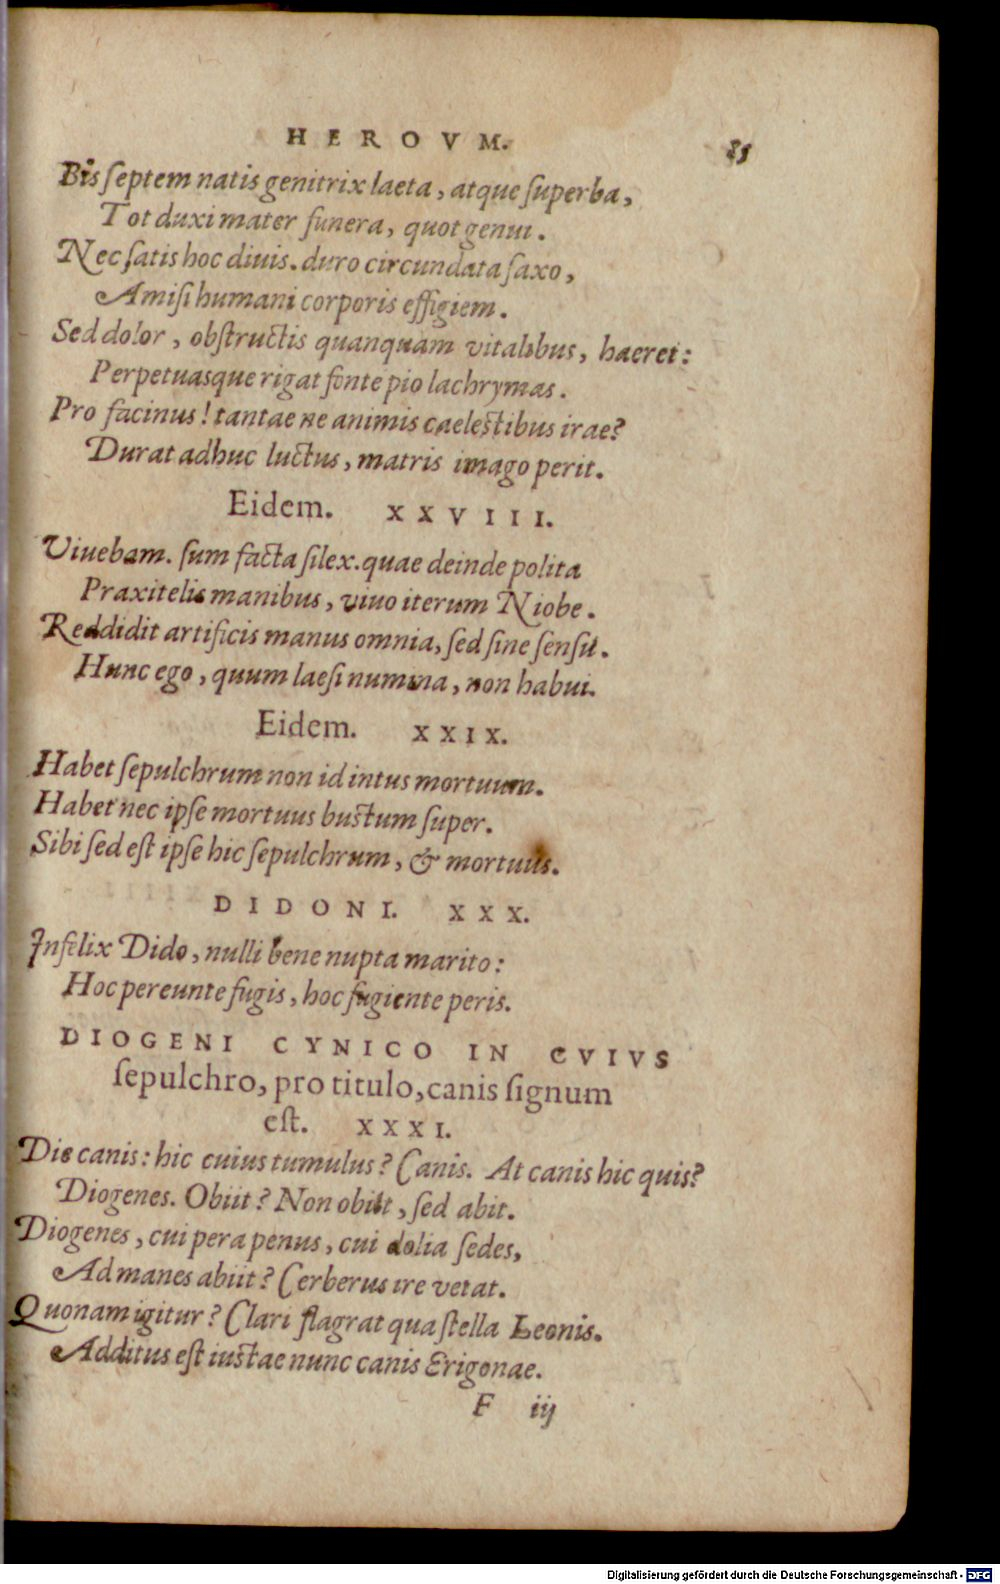 HEROVM. 85
Bis septem natis genitrix laeta, atque superba,
Tot duxi mater funera, quot genui.
Nec satis hoc diuis. duro circundata saxo,
Amisi humani corporis effigiem.
Sed dolor, obstructis quanquam vitalibus, haeret:
Perpetuasque rigat fonte pio lachrymas.
Pro facinus! tantae ne animis caelestibus irae?
Durat adhuc luctus, matris imago perit.
Eidem. XXVIII.
Viuebam. sum facta silex. quae deinde polita
Praxitelis manibus, viuo iterum Niobe.
Reddidit artificis manus omnia, sed sine sensu.
Hunc ego, quum laesi numina, non habui.
Eidem. XXIX.
Habet sepulchrum non id intus mortuum.
Habet nec ipse mortuus bustum super.
Sibi sed est ipse hic sepulchrum, & mortuus.
DIDONI. XXX.
Infelix Dido, nulli bene nupta marito:
Hoc pereunte fugis, hoc fugiente peris.
DIOGENI CYNICO IN CVIVS
sepulchro, pro titulo, canis signum
est. XXXI.
Dic canis: hic cuius tumulus? Canis. At canis hic quis?
Diogenes. Obiit? Non obiit, sed abit.
Diogenes, cui pera penus, cui dolia sedes,
Ad manes abiit? Cerberus ire vetat.
Quonam igitur? Clari flagrat qua stella Leonis.
Additus est iustae nunc canis Erigonae.
F iij
Digitalisierung gefördert durch die Deutsche Forschungsgemeinschaft - DFG